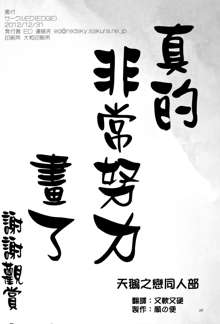 発行
サークルED(EDGE)
2012/12/31
発行者 ED 連絡先 ed@redsky.sakura.ne.jp
印刷所 大和印刷所
真的
非常努力
畫了
謝謝觀賞
天鵝之戀同人部
翻譯：又軟又硬
製作：風の使